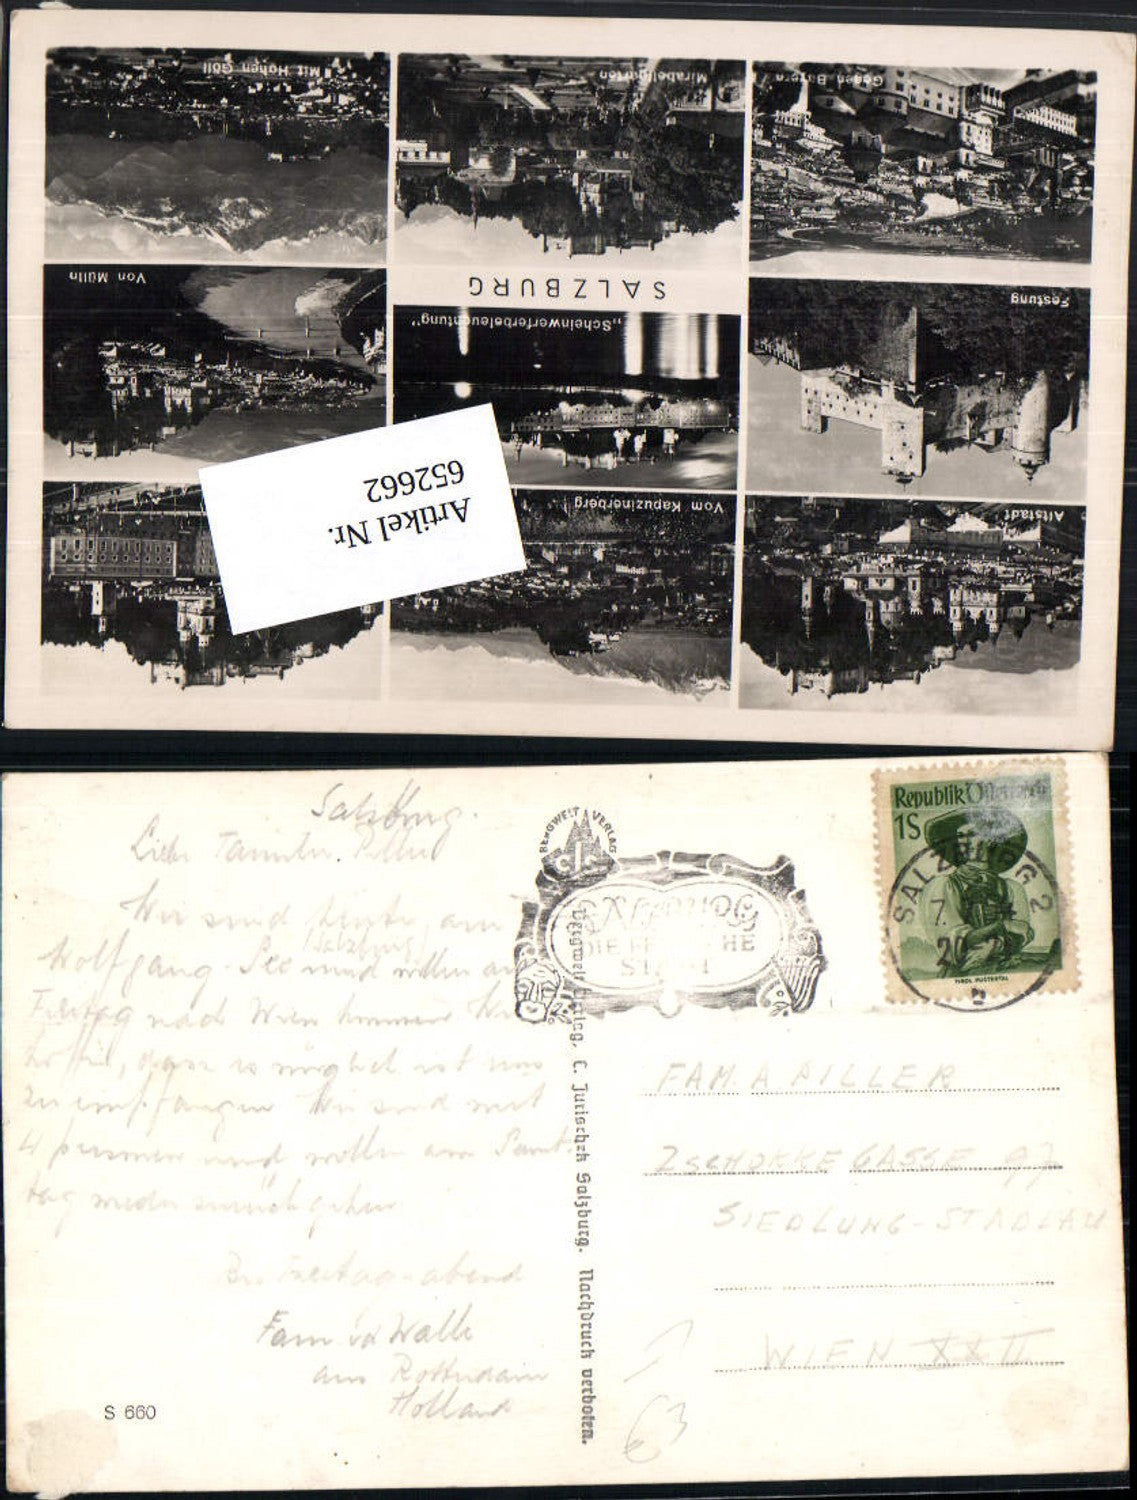 Mit Hohen Göll
Mirabellgarten
Gegen Bayern
Von Mülln
SALZBURG
„Scheinwerferbeleuchtung"
Festung
Artikel Nr.
652662
Vom Kapuzinerberg
Altstadt
Salzburg.
Liebe Familie Piller
Wir sind heute am
Wolfgang-See (Salzburg) und wollen am
Freitag nach Wien kommen. Wir
dass es möglich ist uns
zu empfangen Wir sind mit
4 personen und wollen am Samt
tag wieder zurückgehen
Bis Freitag-abend
Fam. vd Walle
aus Rotterdam
Holland
S 660
BERGWELT VERLAG
CJS
DIE STADT
Bergwelt Verlag, C. Jurischek Salzburg. Nachdruck verboten.
Republik Österreich
1S
TIROL PUSTERTAL
SALZBURG 2
7.
20-21
FAM. A PILLER
ZSCHOKKE GASSE 97
SIEDLUNG-STADLAU
WIEN XXII
€3